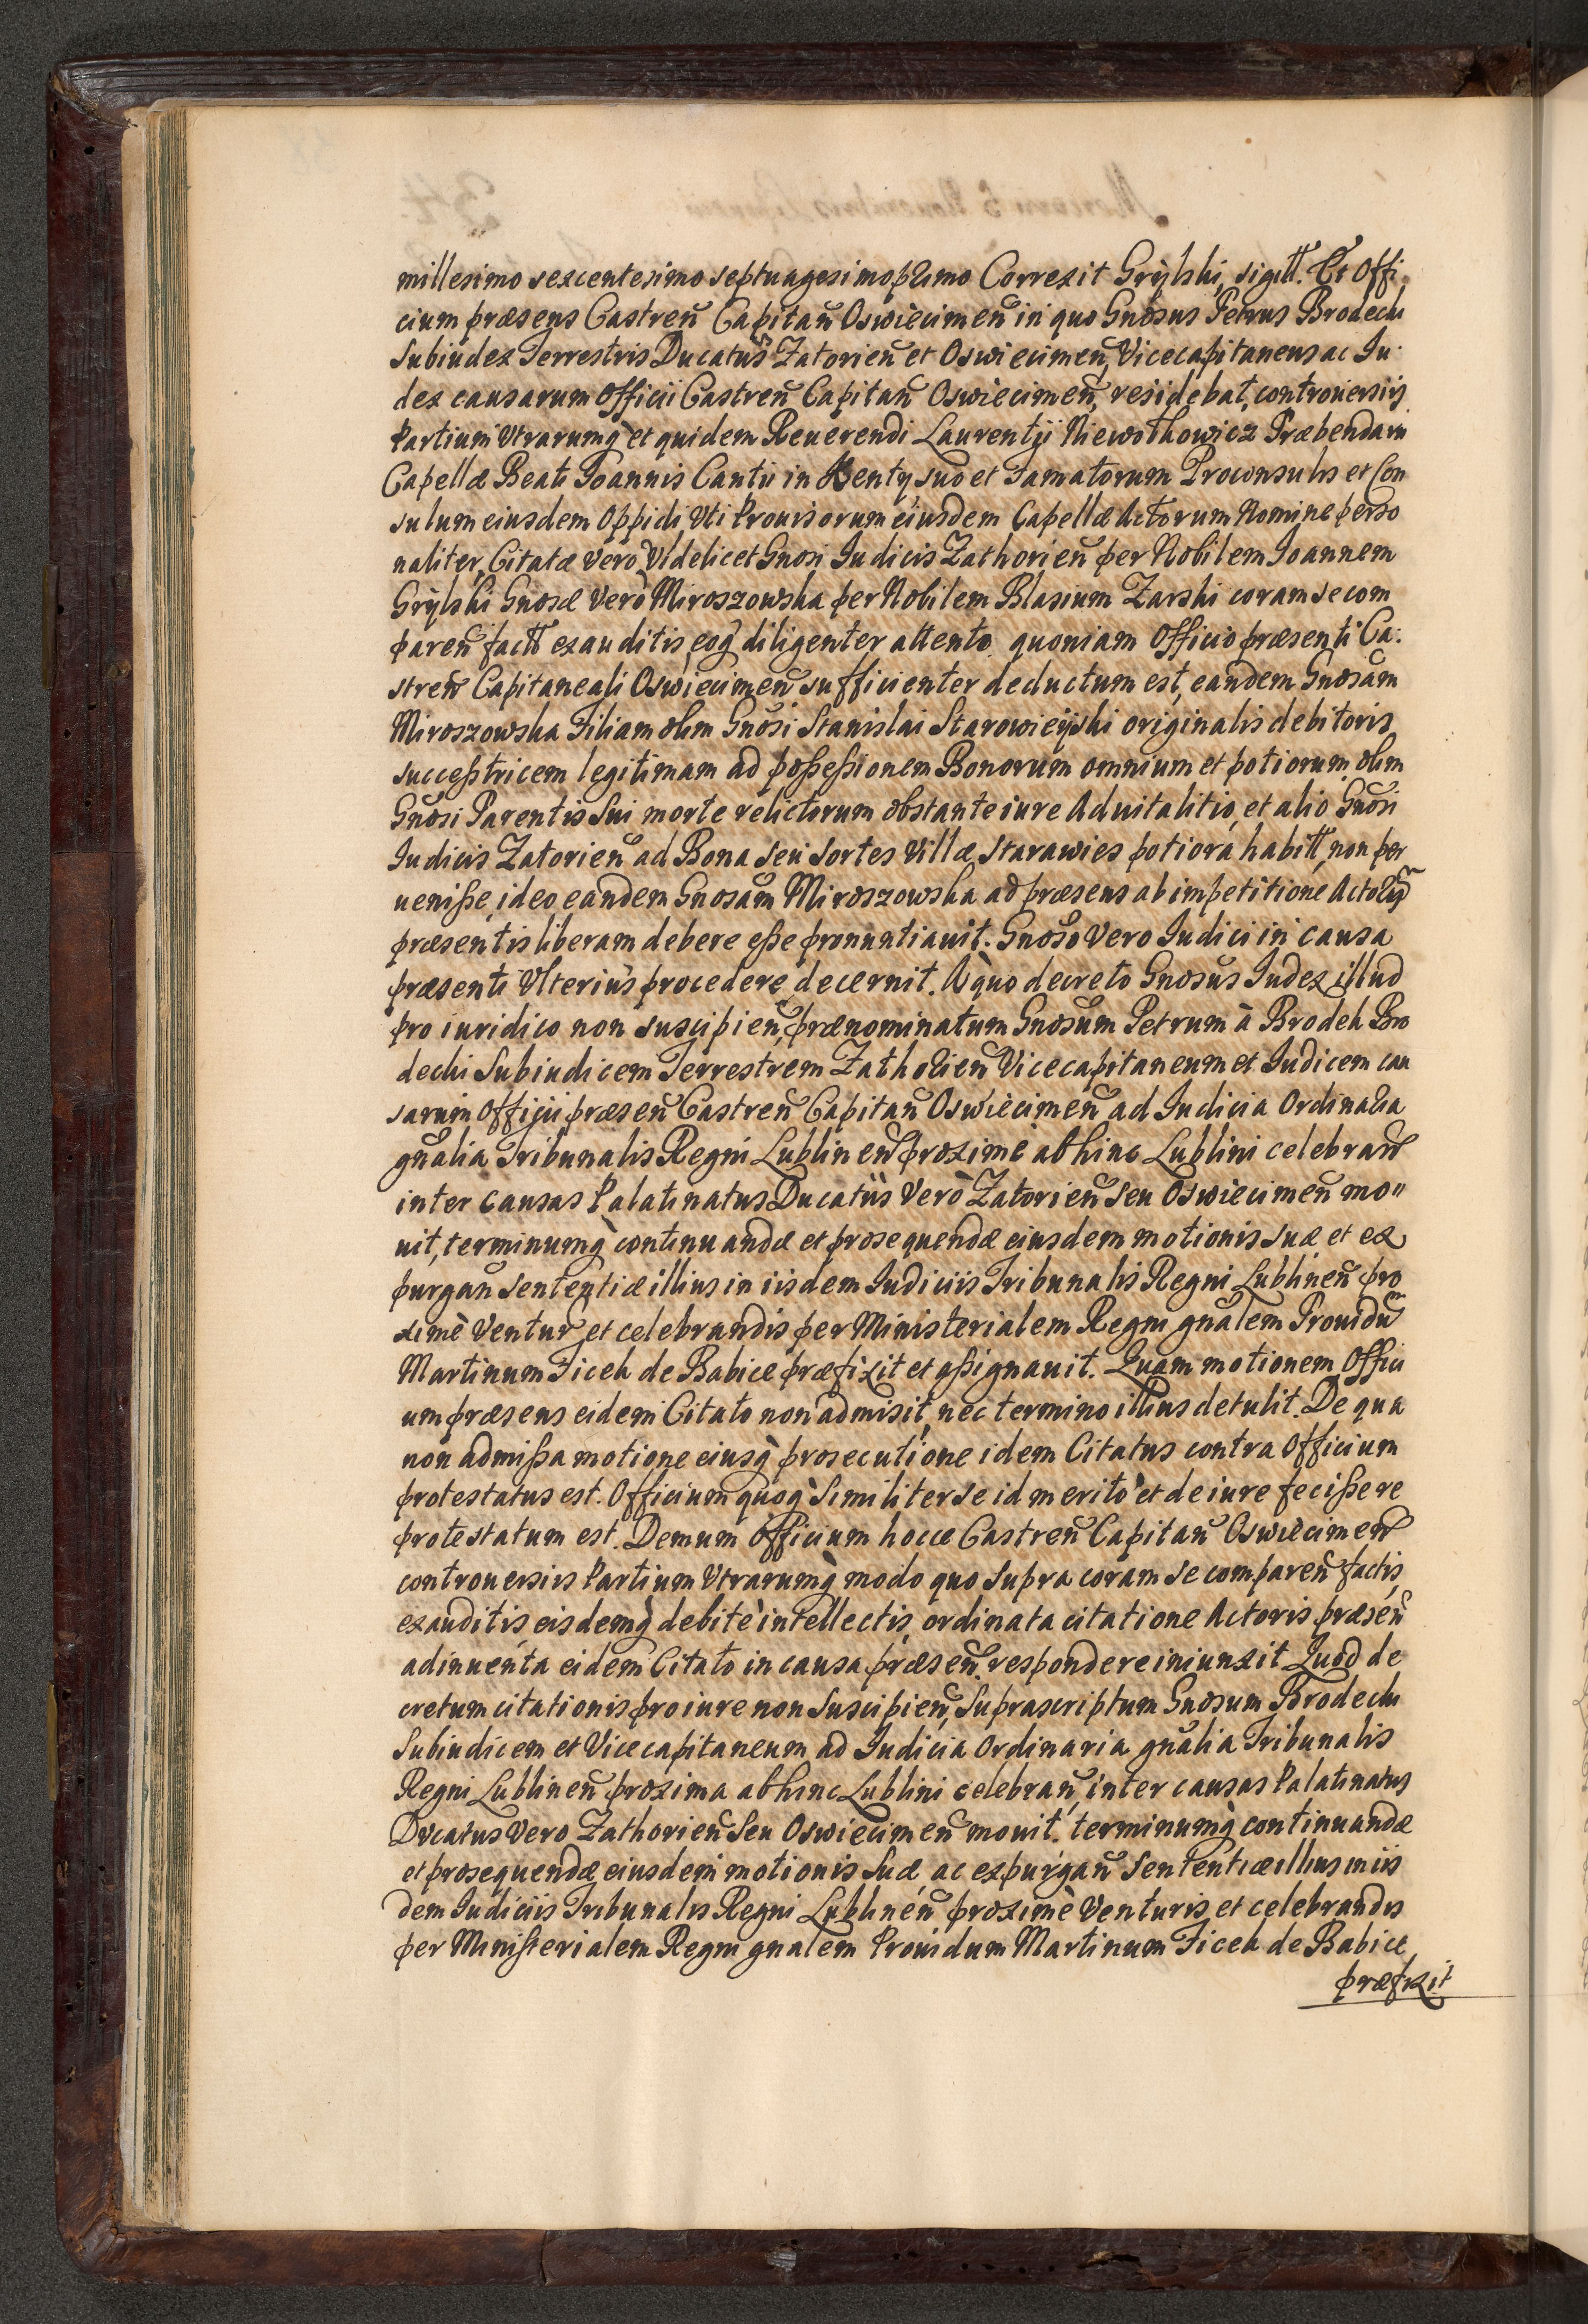 millesimo sexcentesimo septuagesimo primo Correxit Grylski, sigitt. Et Offi
cium præsens Castreñ Capitañ Oswiecimeñ in quo Gnosus Petrus Brodecki
Subiudex Terrestris Ducatus Zatorieñ et Oswiecimeñ, Vicecapitaneus ac Iu:
dex causarum Officii Castreñ Capitañ Oswiecimeñ, residebat, controuersiis
Partium Vtrarumq̀ et quidem Reuerendi Laurentÿ Præbendarii
Capellæ Beati Ioannis Cantii in Kenty suo et Famatorum Proconsulis et Con
sulum eiusdem Oppidi Vti Prouisorum eiusdem Capellæ Actorum Nomine perso
naliter, Citatæ verò Videlicet Gnosi Iudicis Zathorieñ per Nobilem Ioannem
Grylski Gnosæ Verò Miroszowska per Nobilem Blasium Zarski coram se com
pareñ factt exauditis, eoq̀ diligenter attento quoniam Officio præsenti Ca:
streñ Capitaneali Oswiecimeñ sufficienter deductum est, eandem Gnosam
Miroszowska Filiam olim Gnosi Stanislai Starowieÿski originalis debitoris
succeßtricem legitimam ad poßeßionem Bonorum omnium et potiorum olim
Gnosi Parentis Sui morte relictorum obstante iure Aduitalitio, et alio Gnosi
Iudicis Zatorieñ ad Bona seu Sortes Villæ Starawies potiora habitt, non per
ueniße, ideo eandem Gnosam Miroszowska ad præsens ab impetitione
præsentis liberam debere eße pronuntiauit. Gnoso Vero Iudici in causa
præsenti Vlterius procedere decernit. A quo decreto Gnosus Iudex illud
pro iuridico non suscipieñ, prænominatum Gnosum Petrum à Brodek Bro
decki Subiudicem Terrestrem Zathorieñ Vicecapitaneum et Iudicem cau
sarum Officÿ præseñ Castreñ Capitañ Oswiecimeñ ad Iudicia Ordinaria
gnãlia Tribunalis Regni Lublineñ proximè abhinc Lublini celebrañ
inter causas Palatinatus Ducatûs Verò Zatorieñ Seu Oswiecimeñ mo"
uit, terminumq̀ continuandæ et prosequendæ eiusdem motionis suæ et ex
purgañ Sententiæ illius in iisdem Iudiciis Tribunalis Regni Lublineñ pro
ximè Ventur̃, et celebrandis per Ministerialem Regni gnalem Prouidũ
Martinum Ficek de Babice præfixit et aßignauit. Quam motionem Offici
um præsens eidem Citato non admisit, nec termino illius detulit. De qua
non admißa motione eiusq̀ prosecutione idem Citatus contra Officium
protestatus est. Officium quoq̀ Similiter se id meritò et de iure feciße re
protestatum est. Demum Officium hocce Castreñ Capitañ Oswiecimeñ
controuersiis Partium Vtrarumq̀ modo quo supra coram se compareñ factis,
exauditis, eisdemq̀ debitè intellectis, ordinata citatione Actoris præseñ
adinuenta eidem Citato in causa præseñ respondere iniunxit Quod de
cretum citationis pro iure non Suscipieñ, Suprascriptum Gnosum Brodecki
Subiudicem et Vicecapitaneum ad Iudicia Ordinaria gnãlia Tribunalis
Regni Lublineñ proxima abhinc Lublini celebrañ, inter causas Palatinatus
Ducatus Vero Zathorieñ Seu Oswiecimeñ mouit. terminumq̀ continuandæ
et prosequendæ eiusdem motionis Suæ, ac expurgañ Sententiæ illius in iis
dem Iudiciis Tribunalis Regni Lublineñ proximè Venturis et celebrandis
per Ministerialem Regni gnalem Prouidum Martinum Ficek de Babice
præfixit